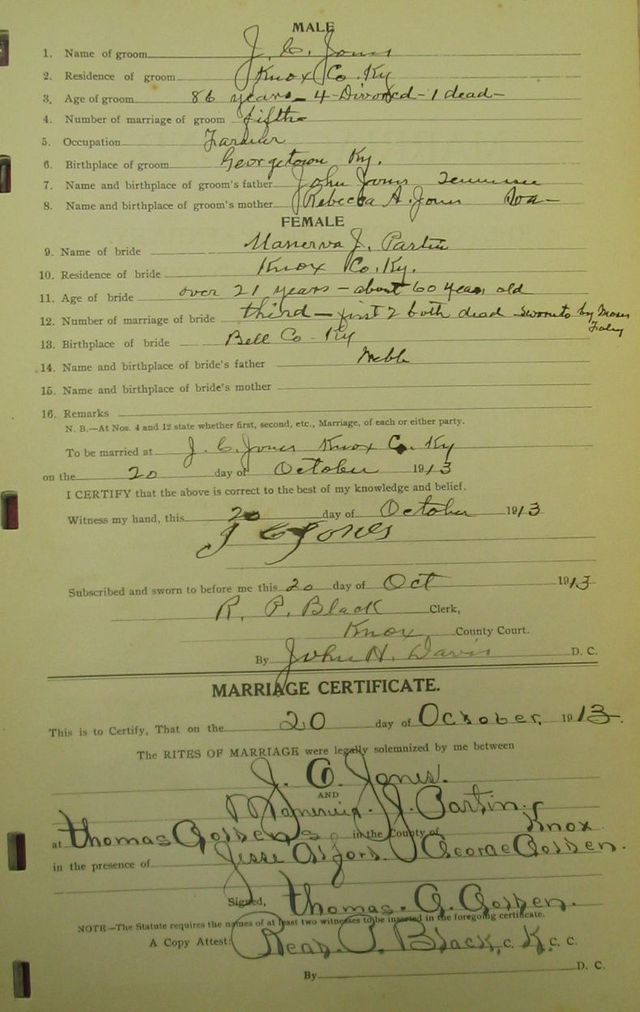 MALE
1. Name of groom J. C. Jones
2. Residence of groom Knox Co. Ky
3. Age of groom 86 years - 4 - Divorced - 1 dead -
4. Number of marriage of groom fifth
5. Occupation Farmer
6. Birthplace of groom Georgetown Ky.
7. Name and birthplace of groom's father John Jones Tennessee
8. Name and birthplace of groom's mother Rebecca A. Jones
FEMALE
9. Name of bride Manerva J. Partin
10. Residence of bride Knox Co. Ky.
11. Age of bride over 21 years - about 60 years old
12. Number of marriage of bride third - first 2 both dead sworn to by Moses
13. Birthplace of bride Bell Co - Ky
14. Name and birthplace of bride's father Webb
15. Name and birthplace of bride's mother
16. Remarks
N. B.—At Nos. 4 and 12 state whether first, second, etc., Marriage, of each or either party.
To be married at J. C. Jones Knox Co. Ky
on the 20 day of October 1913
I CERTIFY that the above is correct to the best of my knowledge and belief.
Witness my hand, this 20 day of October 1913
J C Jones
Subscribed and sworn to before me this 20 day of Oct 1913
R. P. Black Clerk,
Knox County Court.
By John H. Davis D. C.
MARRIAGE CERTIFICATE.
This is to Certify, That on the 20 day of October, 1913.
The RITES OF MARRIAGE were legally solemnized by me between
J. C. Jones.
AND
Manervia. J. Partin,
at Thomas Gossens, in the County of Knox
in the presence of Jesse George Gossen.
Signed, Thomas. G. Gossen.
NOTE—The Statute requires the names of at least two witnesses to be inserted in the foregoing certificate.
A Copy Attest: Read. P. Black, C. K. C. C.
By D. C.